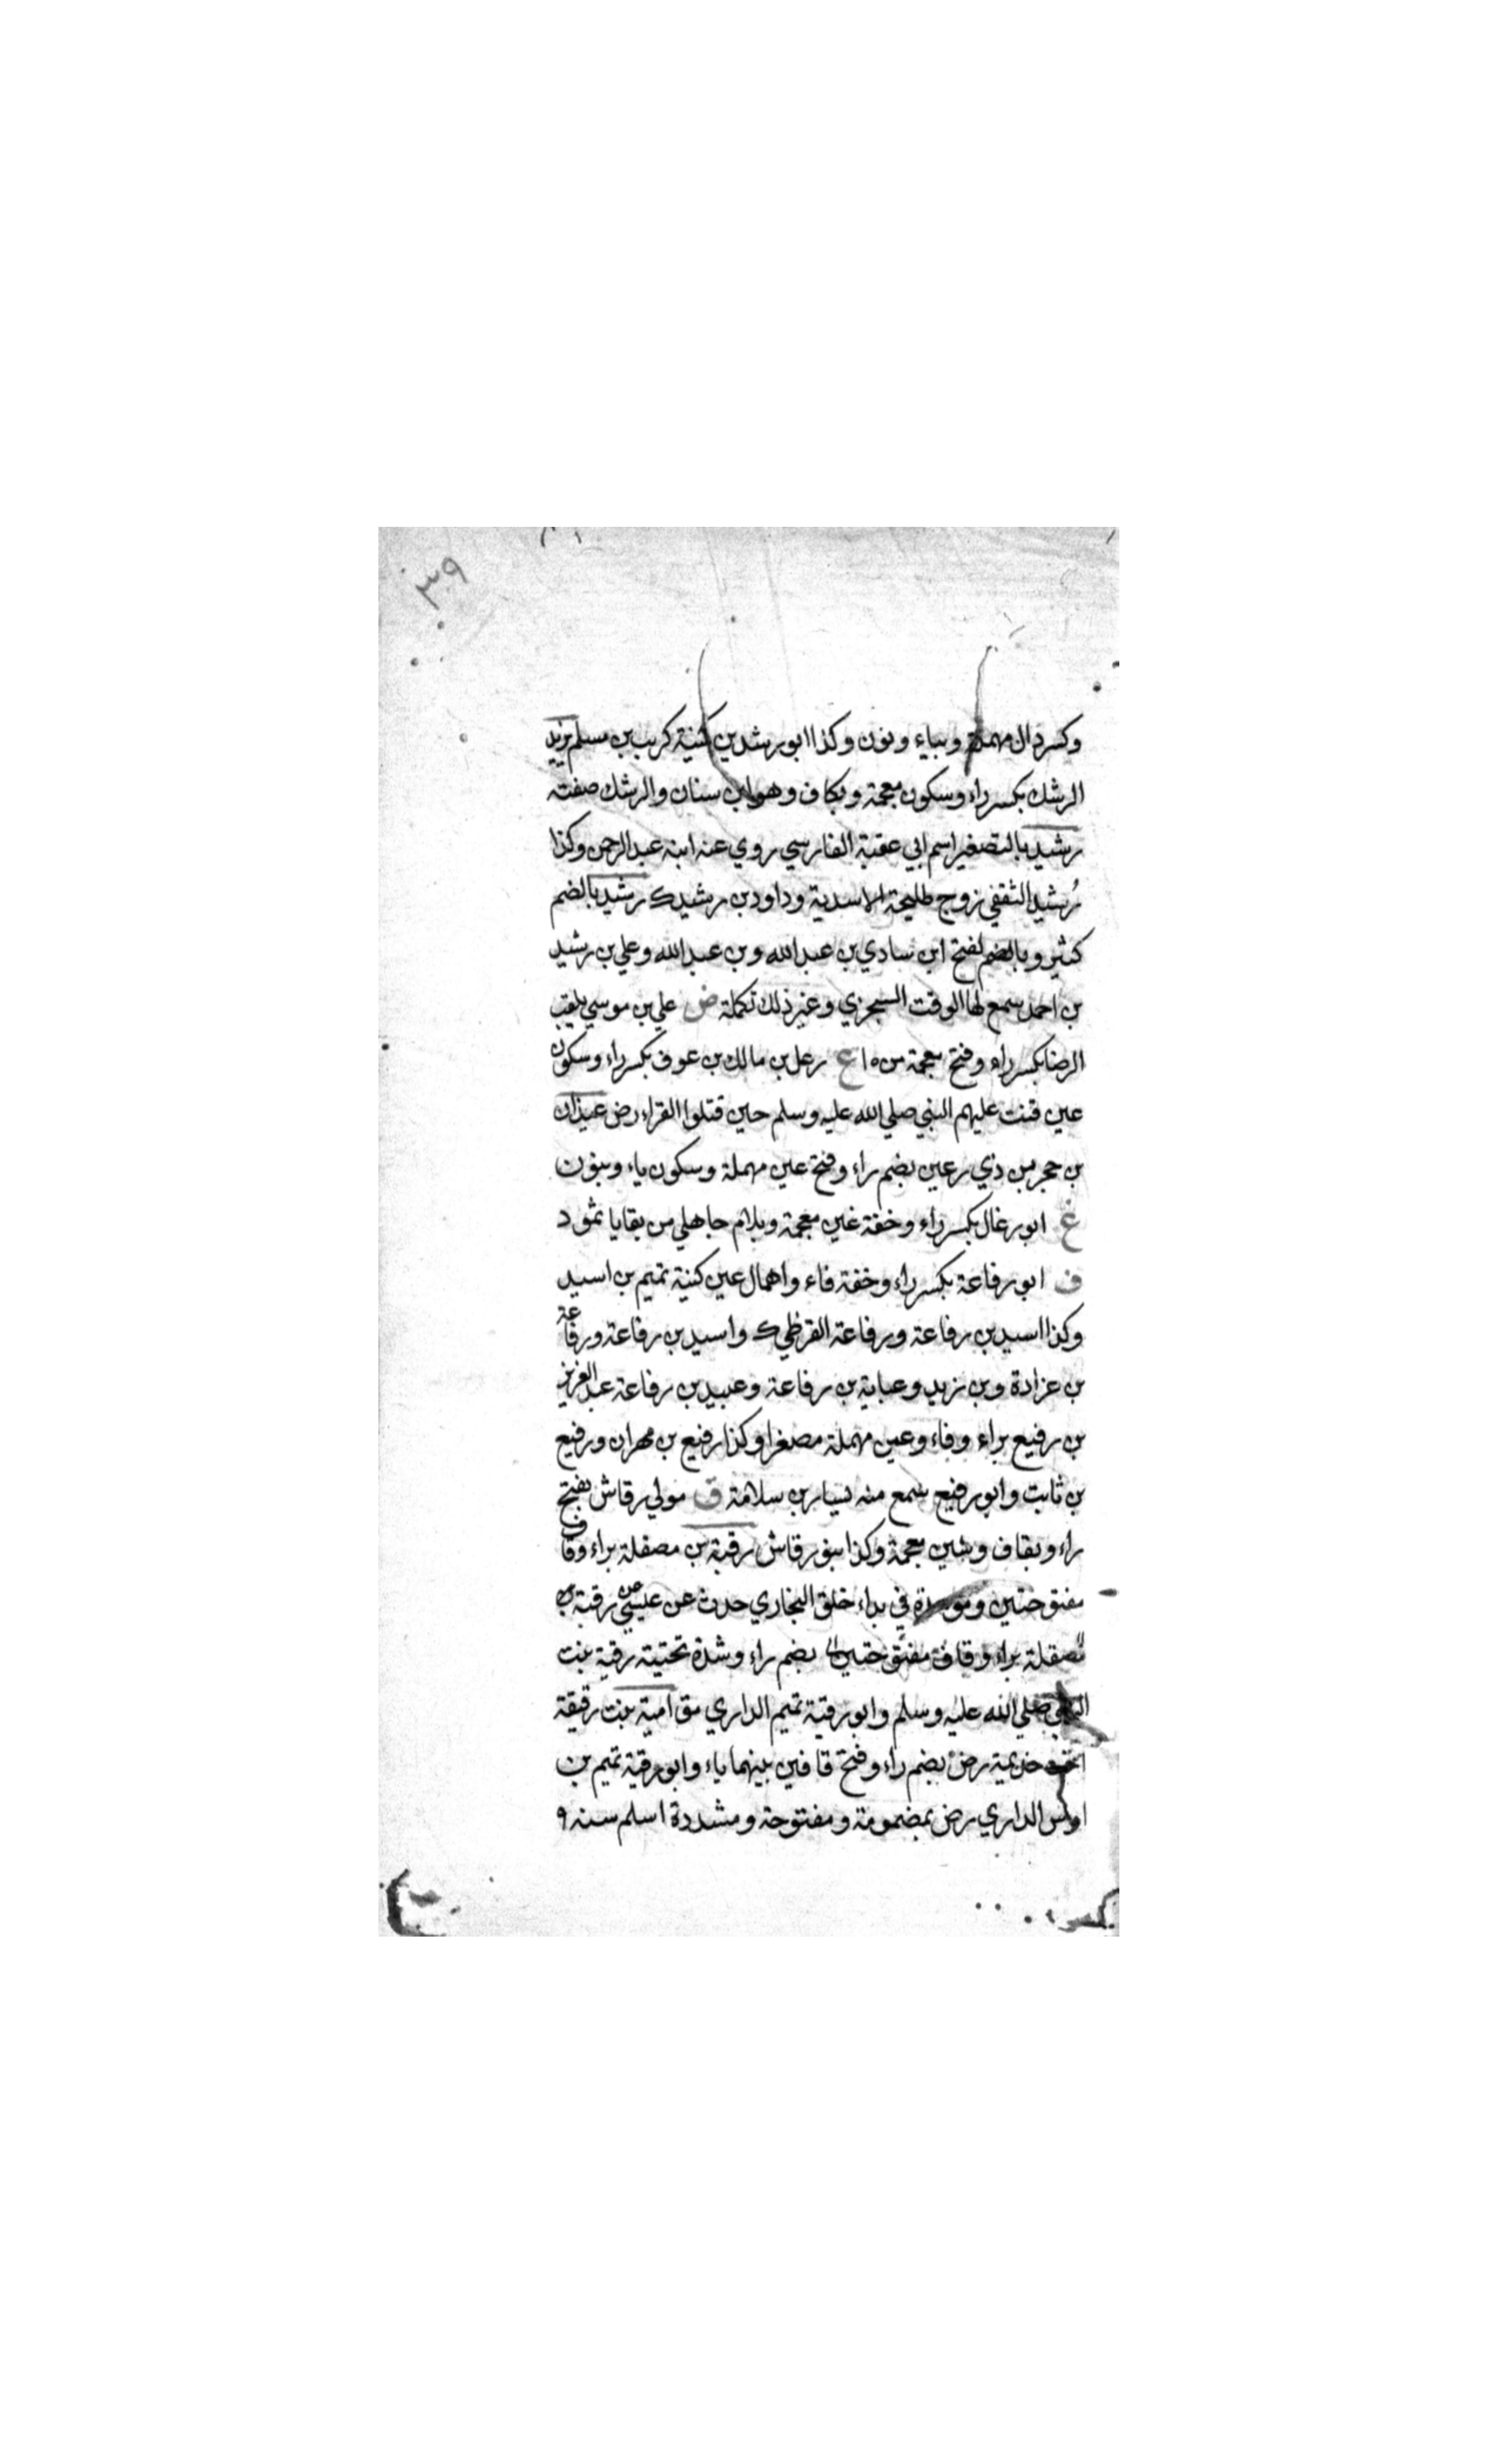 ٣٩
وكسر دال مهملة وبياء ونون وكذا ابو رشدين كنية كريب بن مسلم يزيد
الرشك بكسر راء وسكون معجمة وبكاف وهو ابن سنان والرشك صفته
رشيد بالتصغير اسم ابي عقبة الفارسي روي عنه ابنه عبد الرحمن وكذا
رُشيد الثقفي زوج طليحة الاسدية وداود بن رشيد ك رشيد بالضم
كثير وبالضم لفتح ابن سادي بن عبد الله وبن عبد الله وعلي بن رشيد
بن احمد سمع لها الوقت السجزي وغير ذلك تكملة ض علي بن موسي يلقب
الرضا بكسر راء وفتح معجمة من ه ا ع رعل بن مالك بن عوف بكسر راء وسكون
عين قنت عليهم النبي صلي الله عليه وسلم حين قتلوا القراء رض عبدان
بن حجر من ذي رعين بضم راء وفتح عين مهملة وسكون ياء وبنون
غ ابو رغال بكسر راء وخفة غين معجمة وبلام جاهلي من بقايا ثمود
ف ابو رفاعة بكسر راء وخفة فاء واهمال عين كنية تميم بن اسيد
وكذا اسيد بن رفاعة ورفاعة القرظي ك واسيد بن رفاعة ورفاعة
بن عزادة وبن زيد وعباية بن رفاعة وعبيد بن رفاعة عبد العزيز
بن رفيع براء وفاء وعين مهملة مصغرا وكذا رفيع بن مهران ورفيع
بن ثابت وابو رفيع سمع منه يسار بن سلامة ق مولي رقاش بفتح
راء وبقاف وشين معجمة وكذا بنو رقاش رقبة بن مصقلة براء وقاف
مفتوحتين وموحدة في بداء خلق البخاري حدث عن عيسي رقبة بن
مصقلة براء وقاف مفتوحتين بضم راء وشدة تحتية رقية بنت
النبي صلي الله عليه وسلم وابو رقية تميم الداري مق امية بنت رقيقة
اخت خديمة رض بضم راء وفتح قافين بينهما ياء وابو رقية تميم بن
اوس الداري رض بمضمومة ومفتوحة ومشددة اسلم سنه ٩